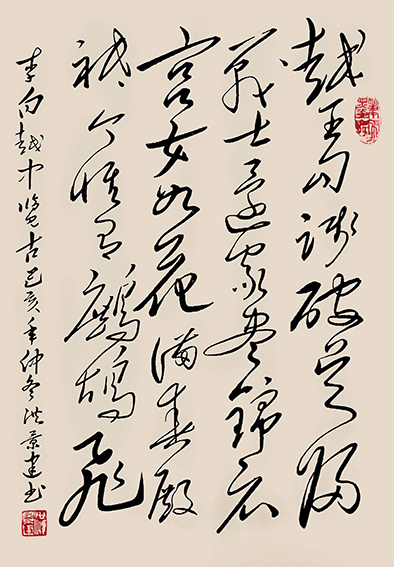 越王勾踐破吳歸
戰士還家盡錦衣
宮女如花滿春殿
祇今惟有鷓鴣飛
李白越中覽古己亥年仲冬洪景建书